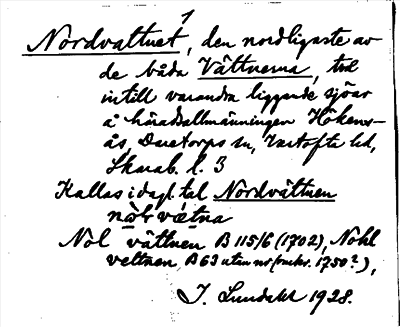 1
Nordvattnet, den nordligaste av
de båda Vättnerna, två
intill varandra liggande sjöar
å häradsallmänningen Hökens-
ås, Daretorps sn, Vartofta hd,
Skarab. l. 3
Kallas i dagl. tal Nordvättnen
Nol vättnen B 115/6 (1702), Nohl
veltnen, B 63 utan nr (omkr. 1750?),
J. Lundahl 1928.